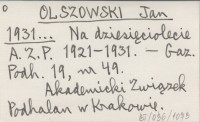 OLSZOWSKI Jan
1931... Na dziesięciolecie
A. Z. P. 1921-1931. — Gaz.
Podh. 19, nr 49.
Akademicki Związek
Podhalan w Krakowie.